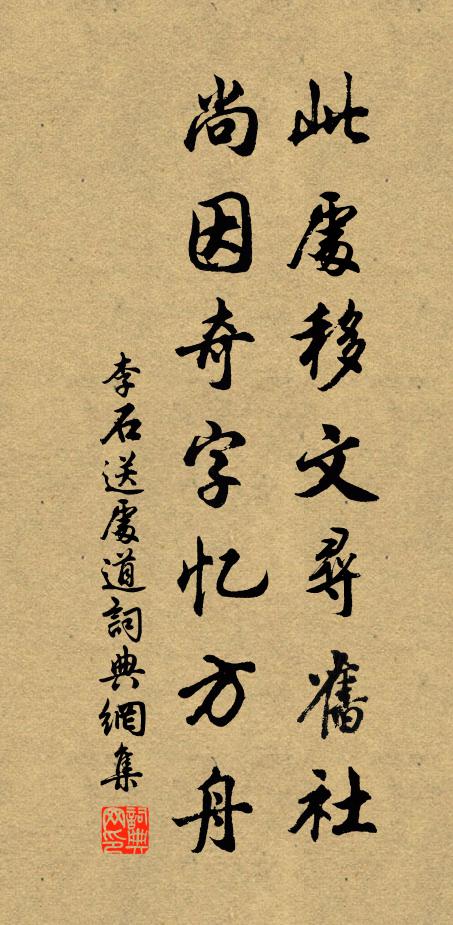 此處移文尋舊社
尚因奇字忆方舟
李石送處道詞典網集
詞典網印